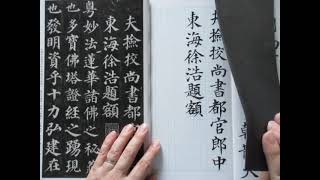 夫撿挍尚書都官郎中
東海徐浩題額
夫撿挍尚書都
東海徐浩題額
粵妙法蓮華諸佛之秘藏
也多寶佛塔證經之踴現
也發明資乎十力弘建在